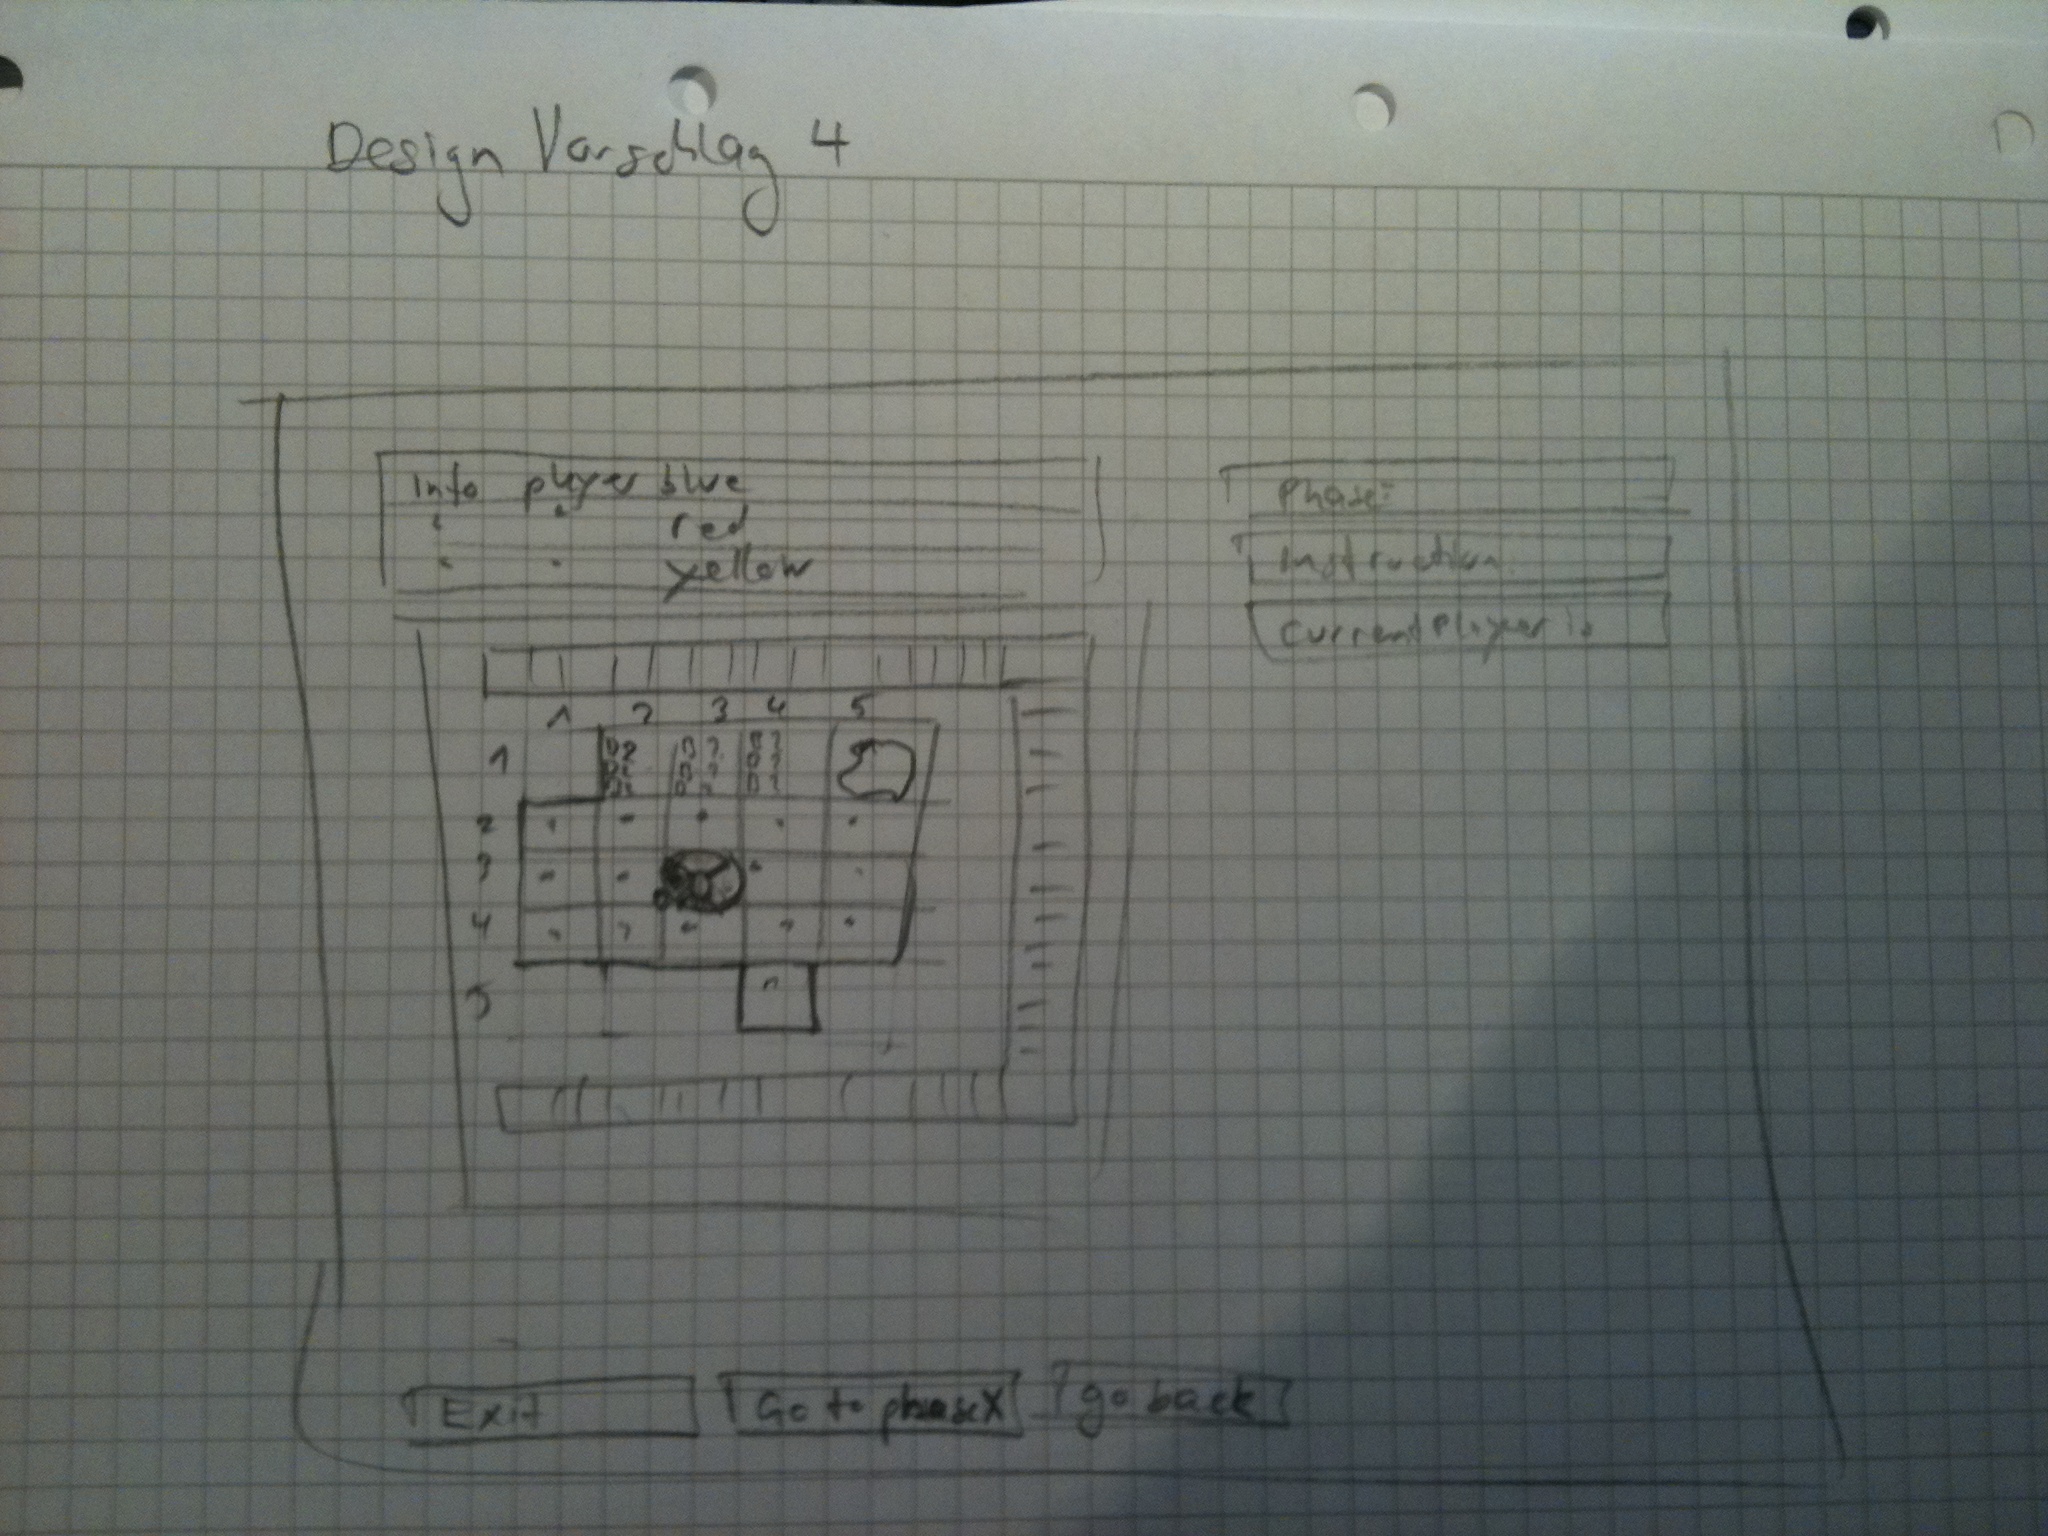 Design Vorschlag 4
Info player blue
" " red
" " yellow
Phase:
Instruction
Current Player is
1 2 3 4 5
1
2
3
4
5
Exit
Go to phase X
go back